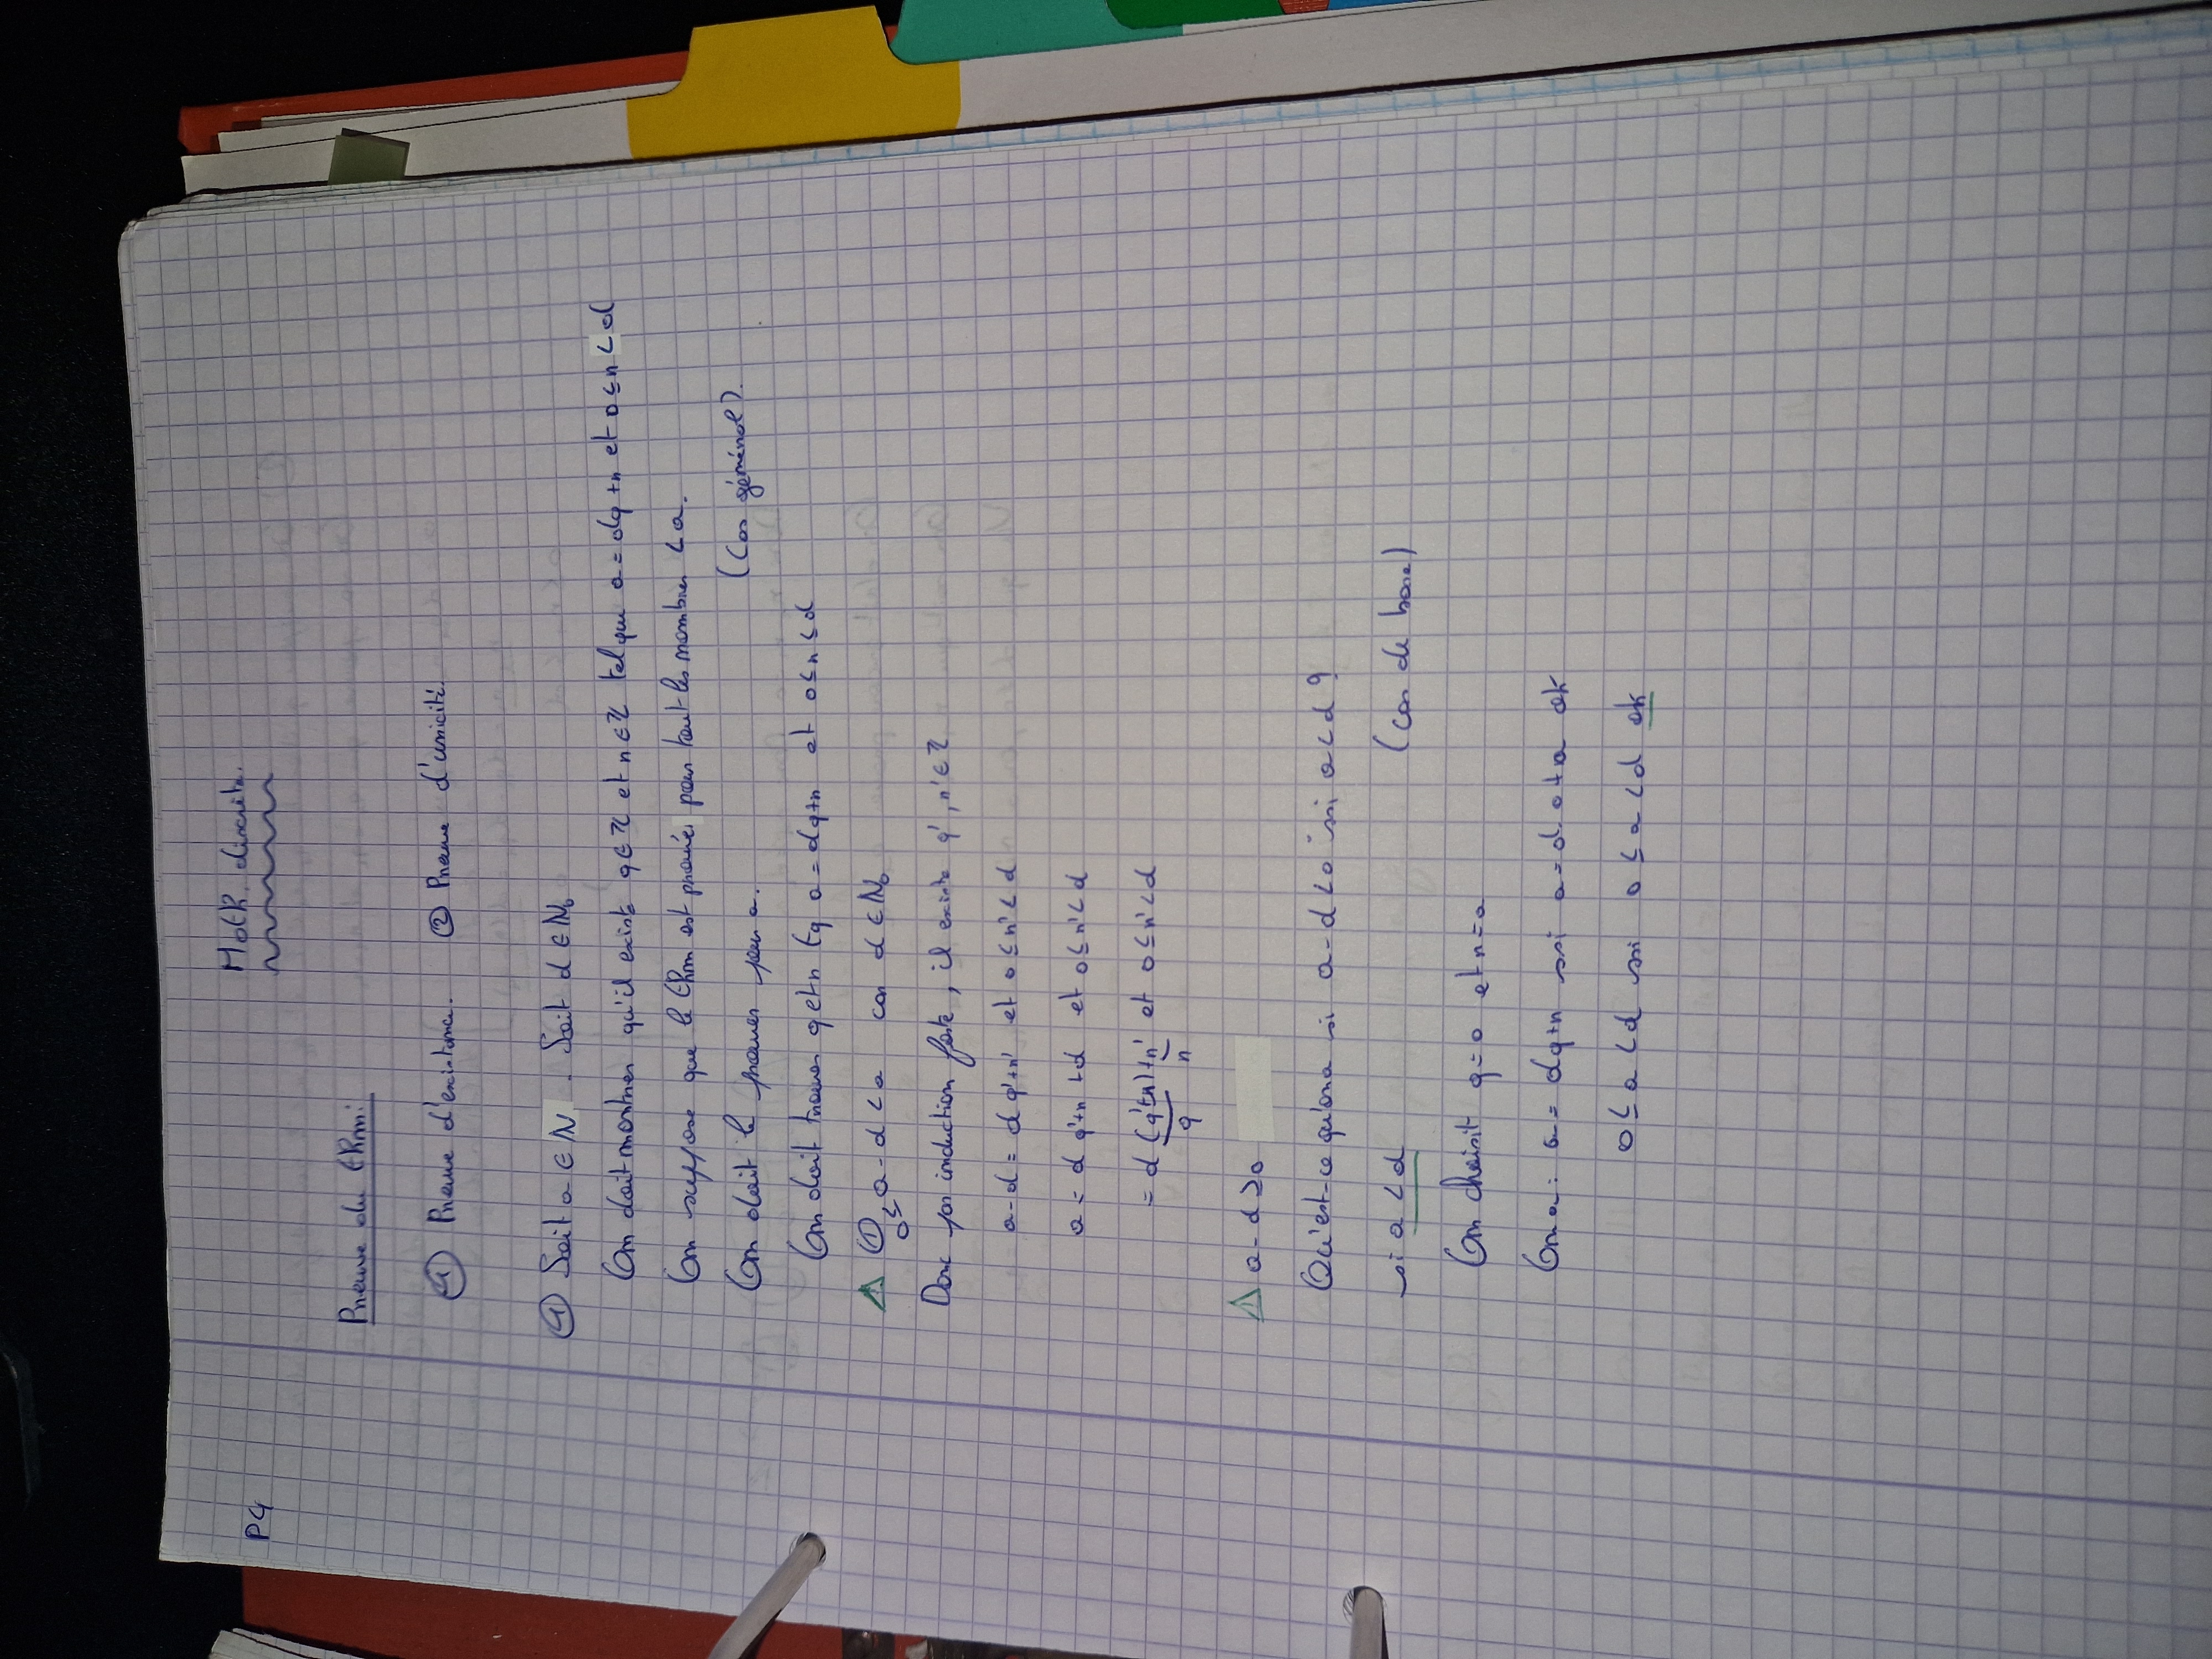 P4
Math. discrète.
Preuve du thm:
① Preuve d'existence. ② Preuve d'unicité.
① Soit a ∈ ℕ. Soit d ∈ ℕ₀
On doit montrer qu'il existe q ∈ ℤ et r ∈ ℤ tel que a = dq + r et 0 ≤ r < d
On suppose que le thm est prouvés pour tout les nombres < a.
On doit le prouver pour a. (Cas général).
On doit trouver q et r tq a = dq + r et 0 ≤ r ≤ d
⚠ ① 0 ≤ a - d < a car d ∈ ℕ₀
Donc par induction forte, il existe q', r' ∈ ℤ
a - d = d q' + r' et 0 ≤ r' < d
a = d q' + r + d et 0 ≤ r' < d
= d (q' + 1) + r' et 0 ≤ r' < d
q r
⚠ a - d ≥ 0
Qu'est-ce qu'on a si a - d < 0 ssi a < d ?
si a < d (cas de base)
On choisit q = 0 et r = a
On a : a = dq + r ssi a = d. 0 + a ok
0 ≤ a < d ssi 0 ≤ a < d ok